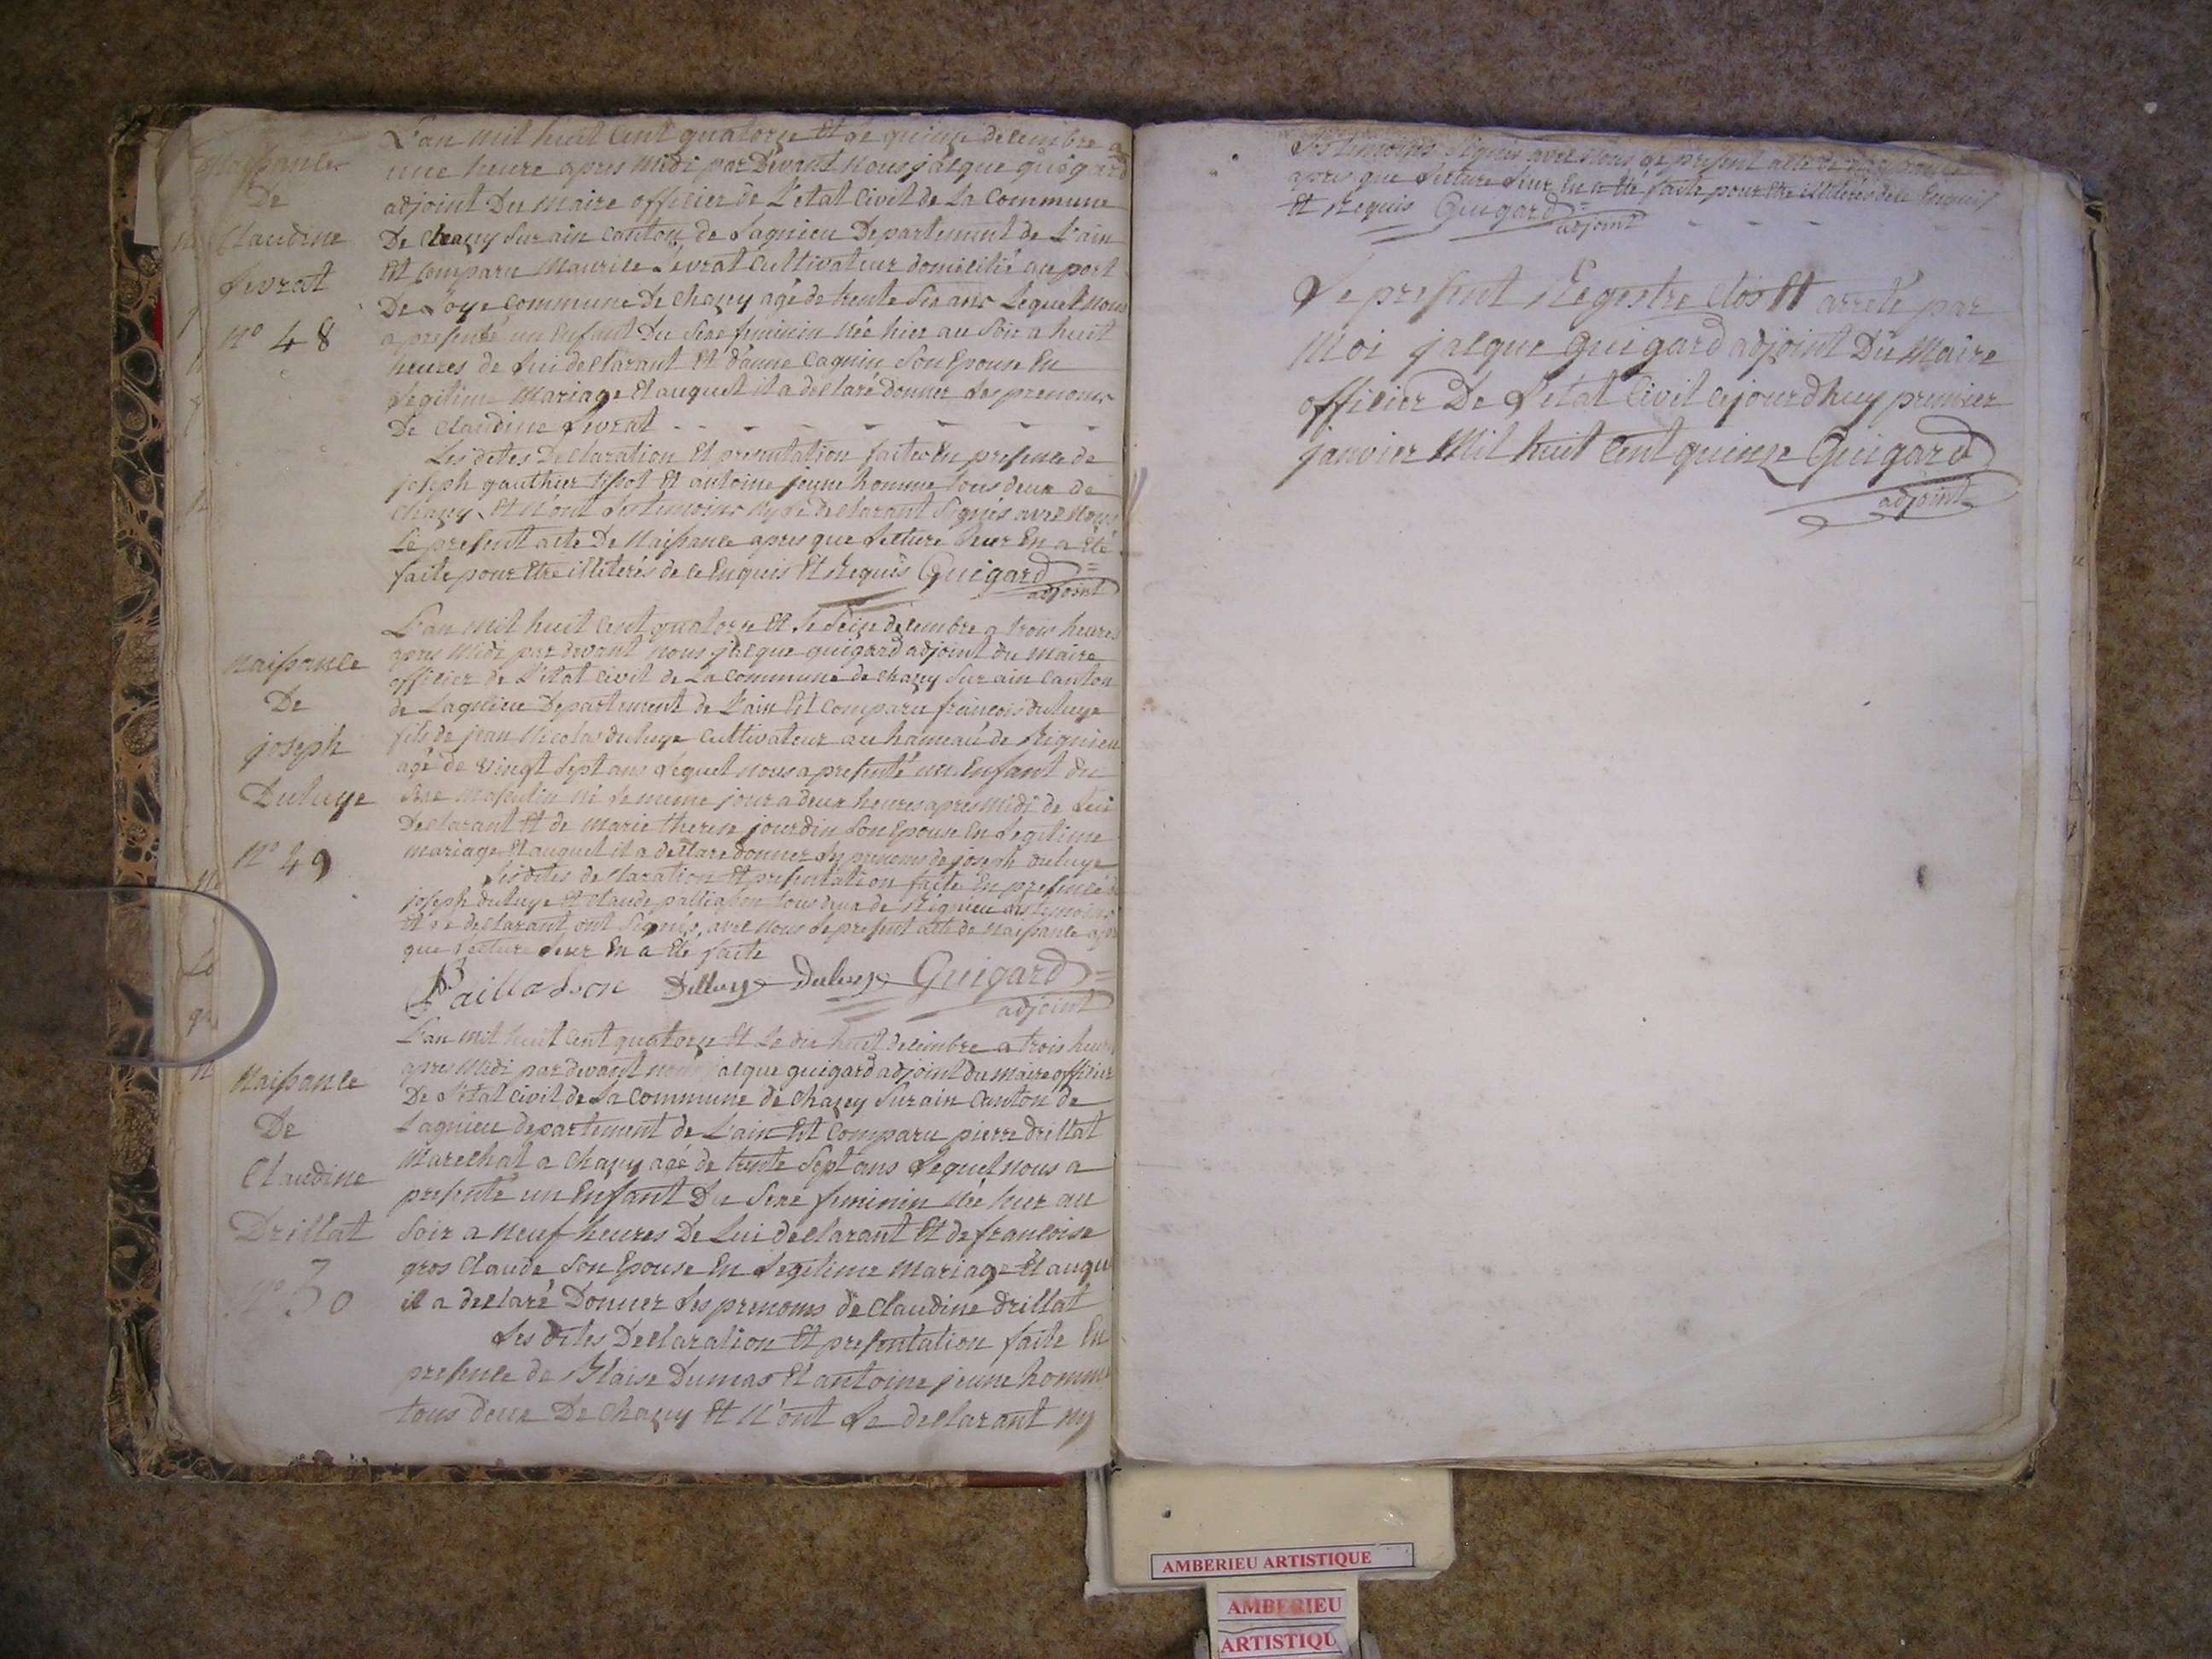 Naissance
De
Claudine
Levrat
N° 48
L'an mil huit Cent quatorze Et le quinze decembre a
une heure apres midi par Devant nous jacque guigard
adjoint Du maire officier de L'etat Civil de La Commune
De Chazey sur ain Canton de Lagnieu Departement de L'ain
Est Comparu Maurice Levrat Cultivateur domicilié au port
De Loye commune De Chazey agé de trente Six ans Lequel nous
a presenté un Enfant Du Sexe feminin née hier au Soir a huit
heures de Lui declarant Et d'anne Cagnin Son Epouse En
Legitime Mariage Et auquel il a declaré donner Les prenoms
De Claudine Levrat
Les dites Declaration Et presentation faites En presence de
joseph gauthier tissot Et antoine jeune homme tous deux de
Chazey Et N'ont Les temoins Ny Le Declarant Signés avec Nous
Le present acte De Naissance apres que Lecture Leur En a Eté
faite pour Etre illiterés de ce Enquis Et Requis Guigard
adjoint
Naissance
De
joseph
Duluye
N° 49
L'an mil huit Cent quatorze Et Le Seize decembre a trois heures
apres Midi par devant nous jacque guigard adjoint du maire
officier de L'etat Civil de La Commune de Chazey Sur ain Canton
de Lagnieu Departement de L'ain Est Comparu francois duluye
fils de jean Nicolas duluye Cultivateur au hameau de Rignieu
agé de vingt Sept ans Lequel nous a presenté un Enfant du
Sexe Masculin né Le meme jour a deux heures apres midi de Lui
Declarant Et de Marie therese jourdin Son Epouse En Legitime
mariage Et auquel il a declaré donner Les prenoms de joseph duluye
Les dites declaration Et presentation faite En presence de
joseph duluye Et Claude paillasson tous deux de Rignieu Les temoins
Et Le declarant ont Signés, avec Nous Le present acte de Naissance apres
que Lecture Leur En a Eté faite
Paillasson Duluye Duluye Guigard
adjoint
Naissance
De
Claudine
Drillat
N° 50
L'an mil huit Cent quatorze Et Le dix huit decembre a trois heures
apres Midi par devant nous jacque guigard adjoint du maire officier
De L'etat Civil de La Commune de Chazey Sur ain Canton de
Lagnieu departement de L'ain Est Comparu pierre drillat
Marechal a Chazey agé de trente Sept ans Lequel nous a
presenté un Enfant Du Sexe feminin Née hier au
Soir a neuf heures De Lui declarant Et de francoise
gros Claude Son Epouse En Legitime Mariage Et auqu
il a declaré Donner Les prenoms de Claudine drillat
Les dites Declaration Et presentation faite En
presence de Blaise Dumas Et antoine jeune homme
tous deux De Chazey Et N'ont Le declarant ny
Les temoins Signés avec Nous Le present acte de Naissance
apres que Lecture Leur En a Eté faite pour Etre illiterés de ce Enquis
Et Requis Guigard
adjoint
Le present Registre Clos Et arreté par
Moi jacque Guigard adjoint Du Maire
officier De L'état Civil Cejourdhuy premier
janvier Mil huit Cent quinze Guigard
adjoint
AMBERIEU ARTISTIQUE
AMBERIEU
ARTISTIQU